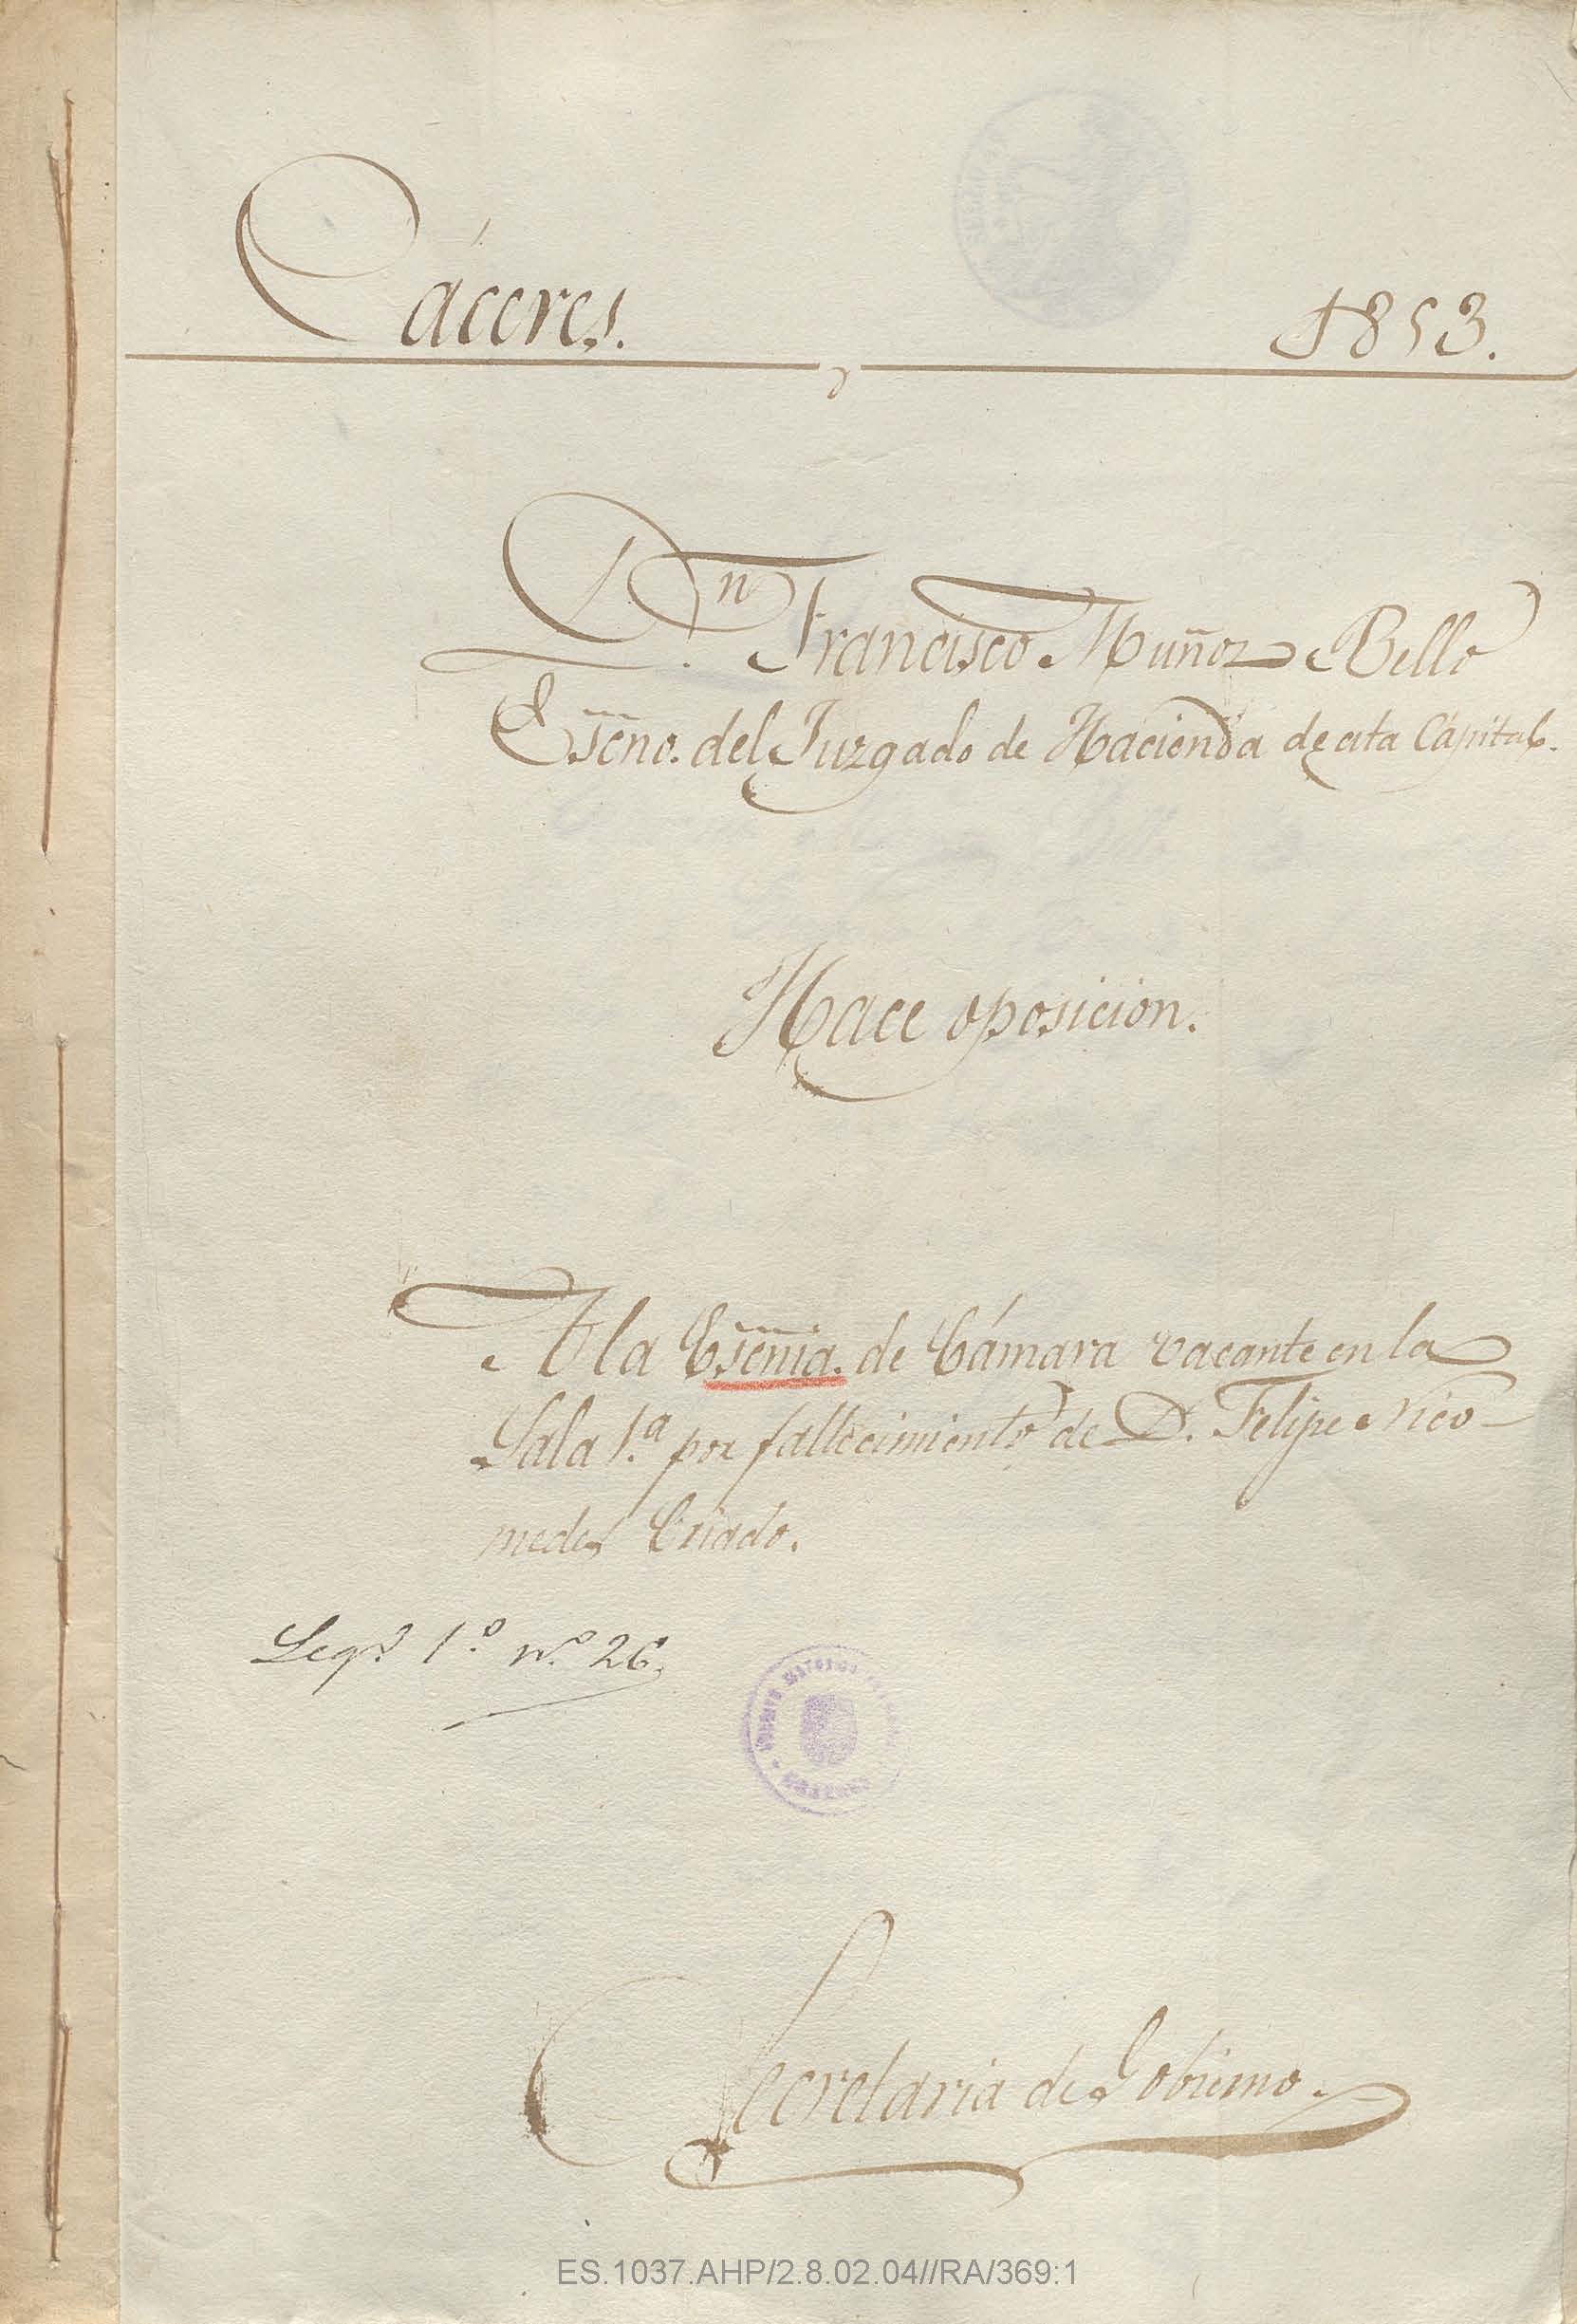 Cáceres.
1853.
Dn. Francisco Muñoz Bello
Esño. del Juzgado de Hacienda de esta Capital.
Hace oposicion.
A la Esñia. de Cámara vacante en la
Sala 1.ª por fallecimiento de D. Felipe Nico-
medes Criado.
Legº. 1.º n.º 26.
Secretaria de Gobierno.
ES.1037.AHP/2.8.02.04//RA/369:1